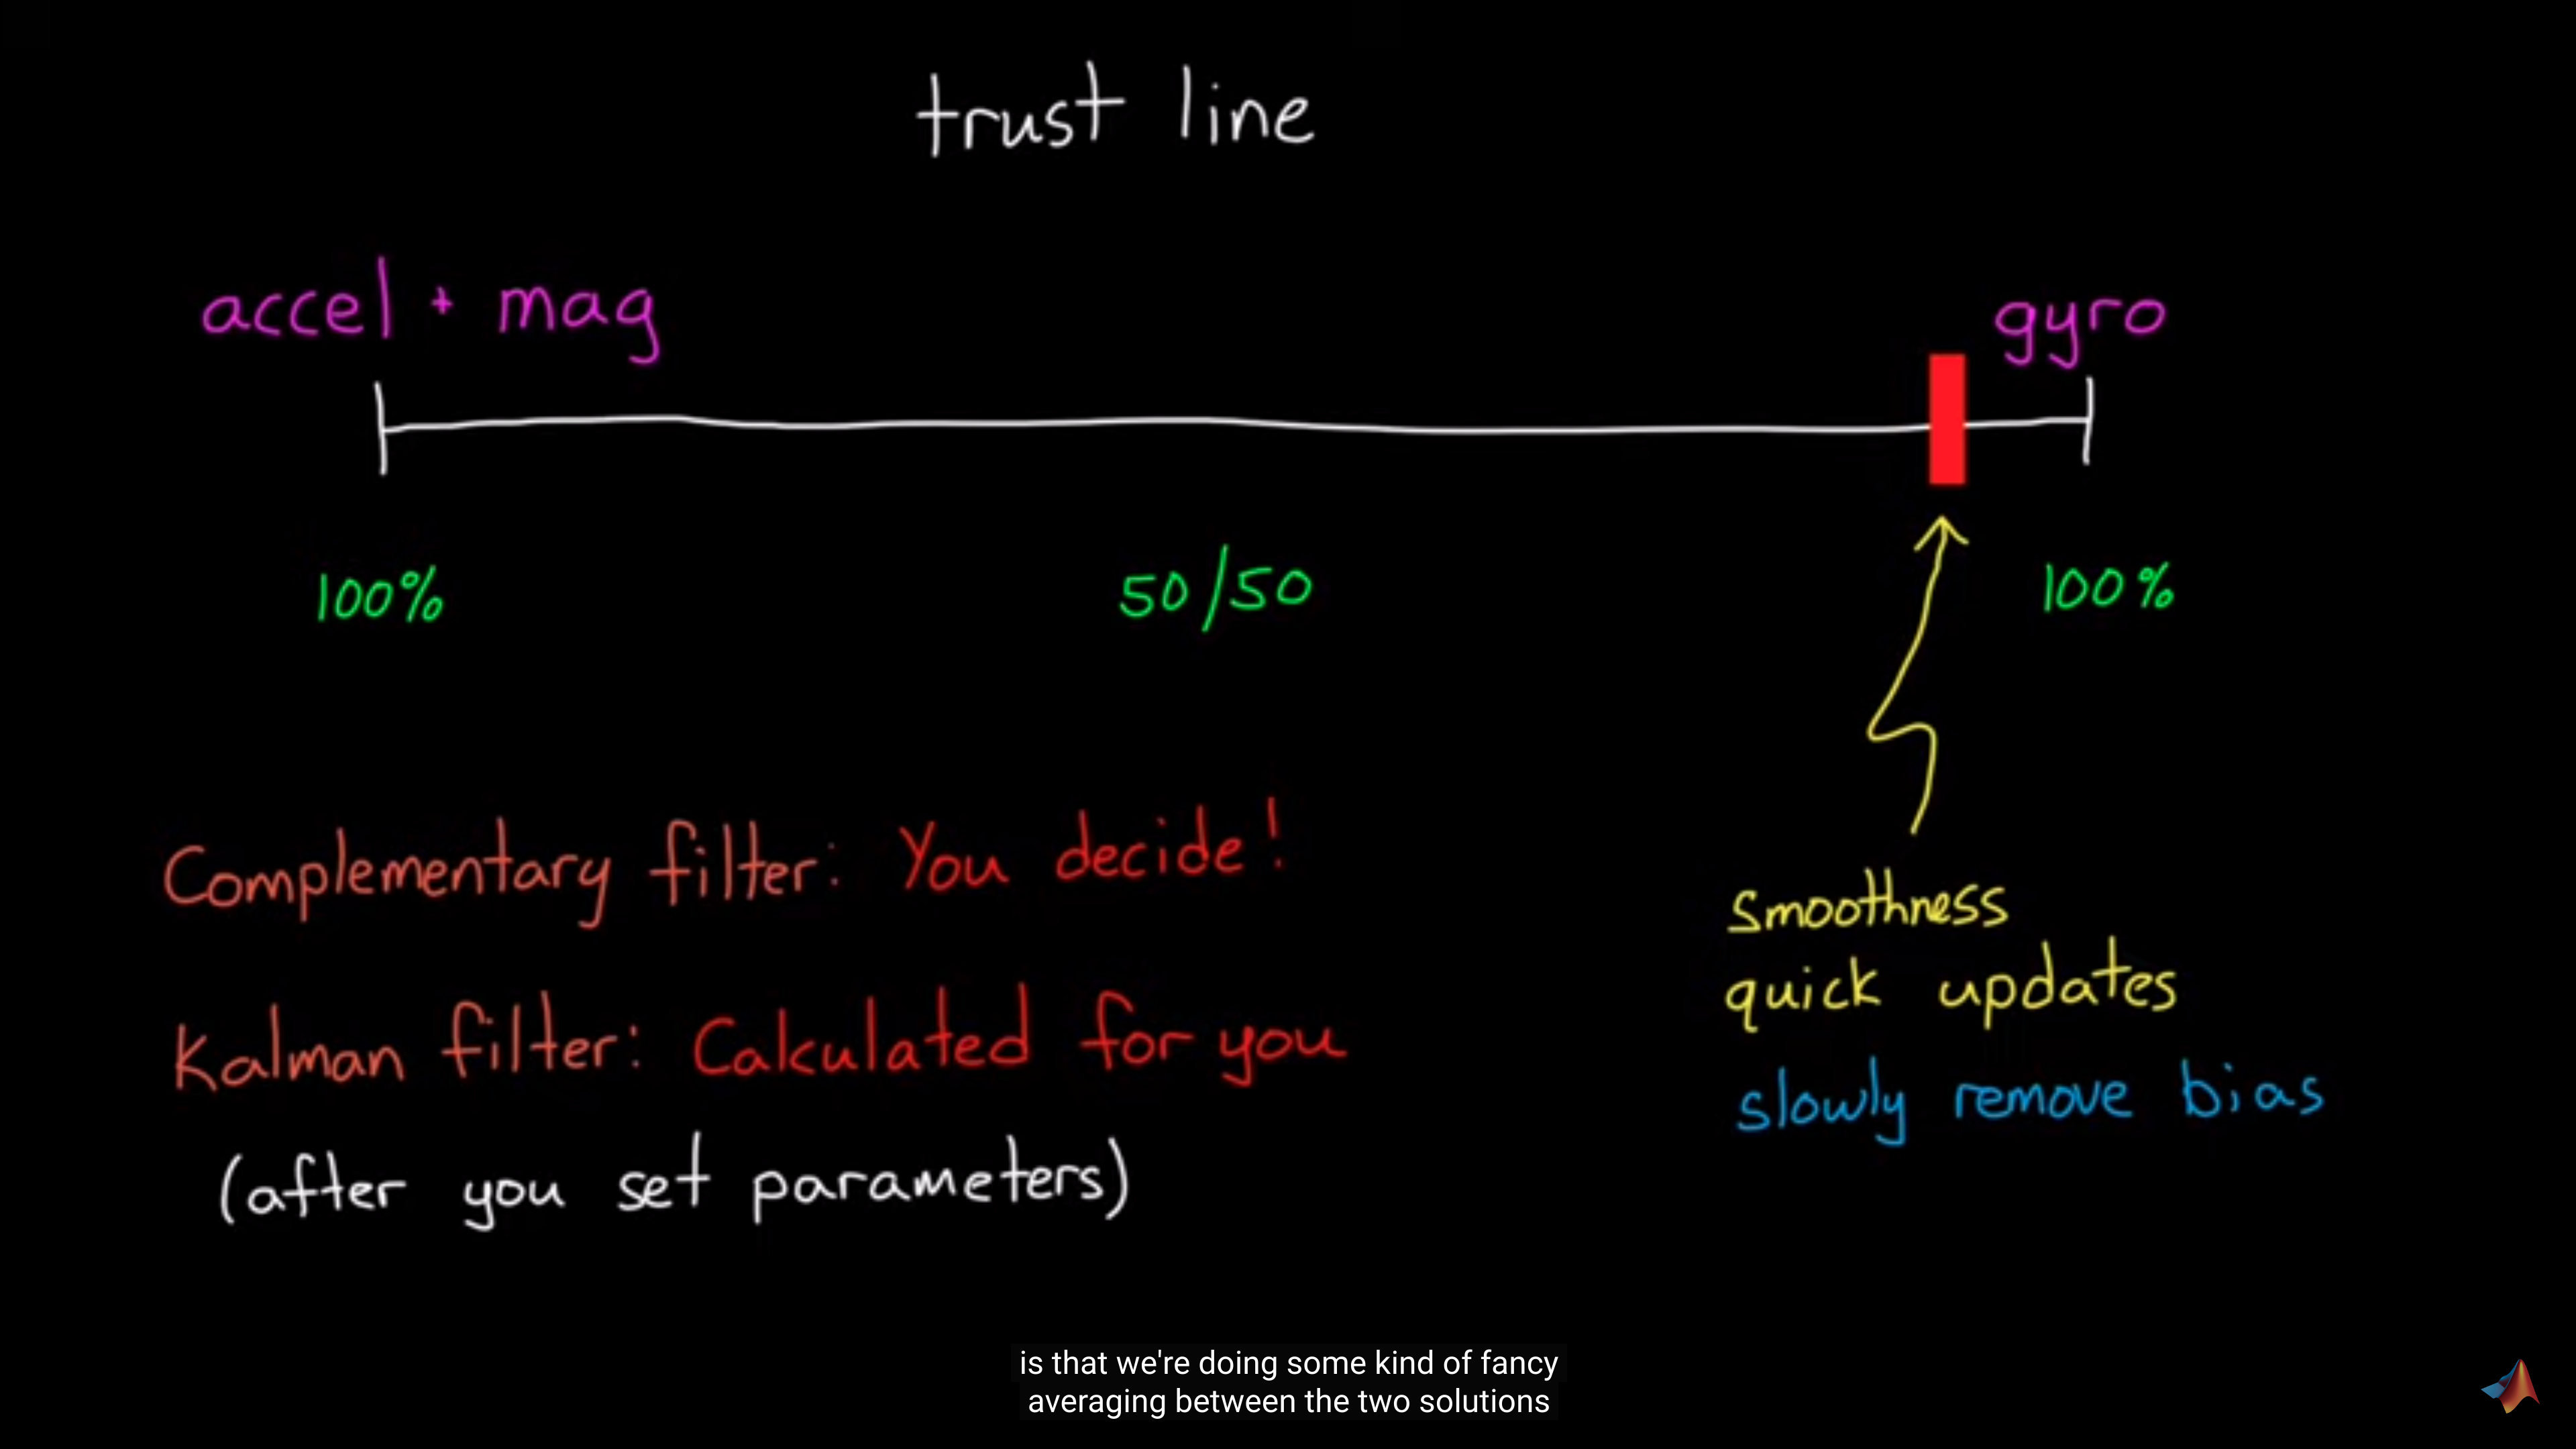 trust line
accel + mag
gyro
100%
50/50
100%
Complementary filter: You decide!
Kalman filter: Calculated for you
(after you set parameters)
smoothness
quick updates
slowly remove bias
is that we're doing some kind of fancy
averaging between the two solutions